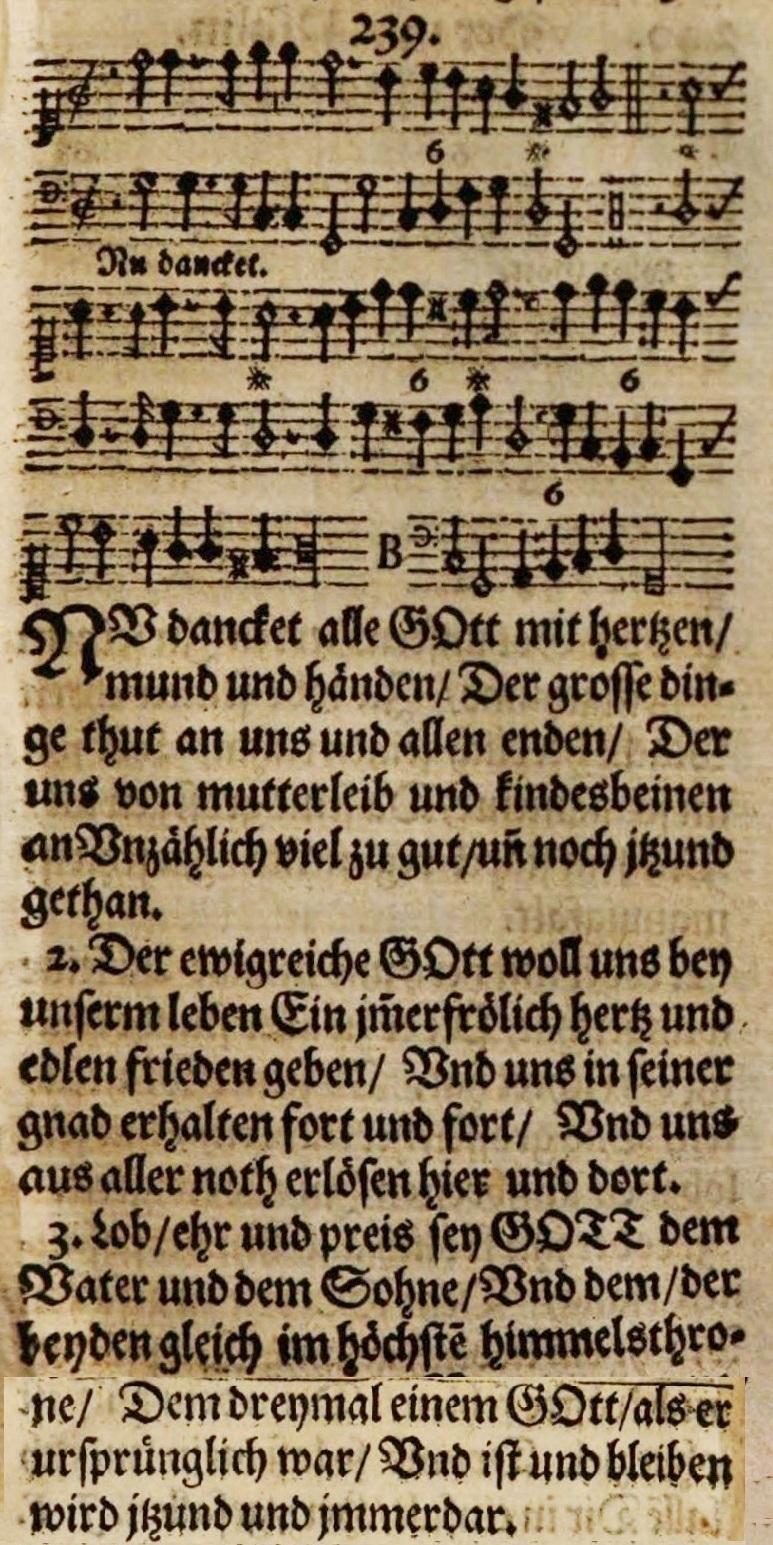 239.
6
Nu dancket.
6 6
6
B
NV dancket alle GOtt mit hertzen/
mund und händen/ Der grosse din-
ge thut an uns und allen enden/ Der
uns von mutterleib und kindesbeinen
an Vnzählich viel zu gut/uñ noch jtzund
gethan.
2. Der ewigreiche GOtt woll uns bey
unserm leben Ein jm̃erfrölich hertz und
edlen frieden geben/ Vnd uns in seiner
gnad erhalten fort und fort/ Vnd uns
aus aller noth erlösen hier und dort.
3. Lob/ehr und preis sey GOTT dem
Vater und dem Sohne/Vnd dem/der
beyden gleich im höchstē himmelsthro-
ne/ Dem dreymal einem GOtt/als er
ursprünglich war/ Vnd ist und bleiben
wird jtzund und jmmerdar.